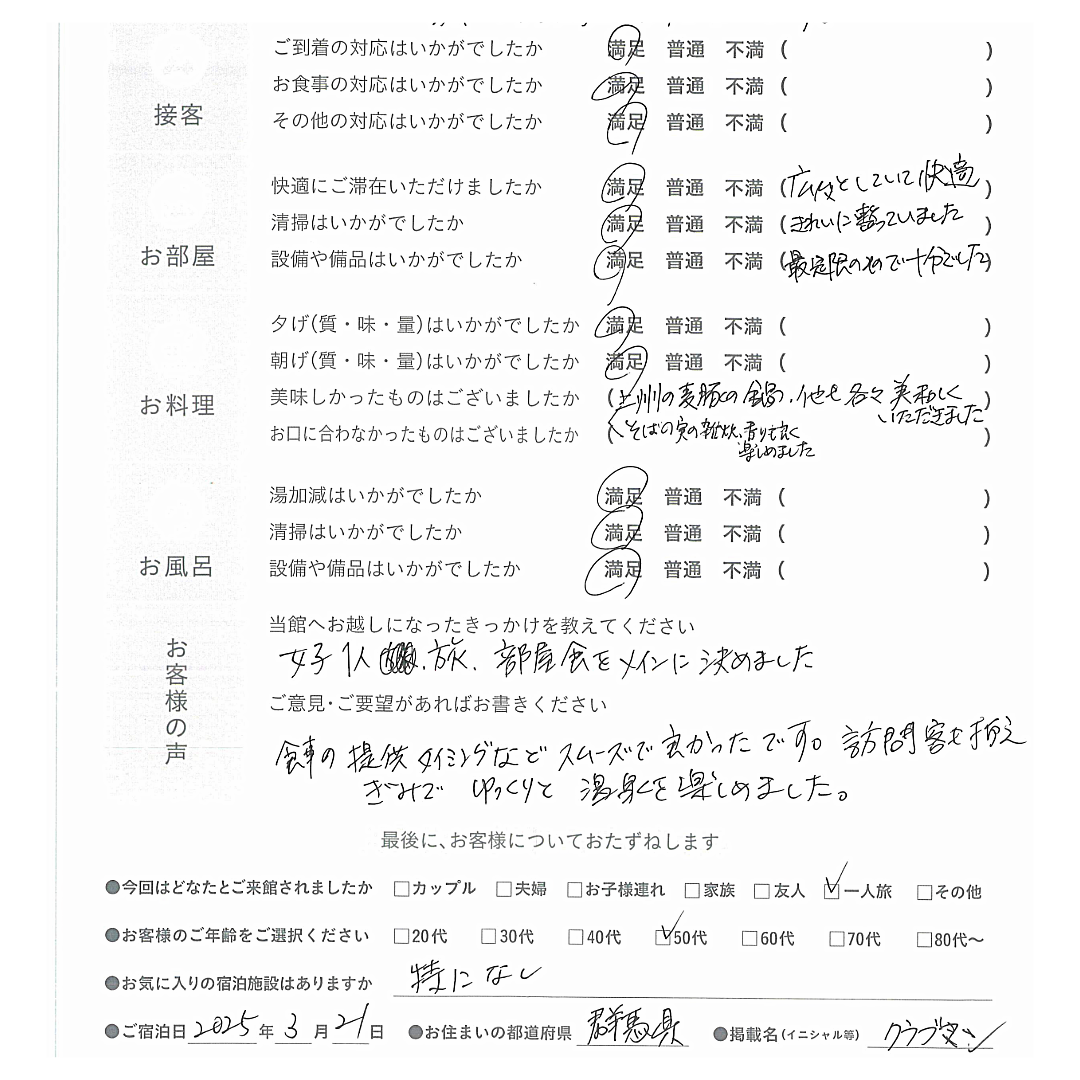 ご到着の対応はいかがでしたか 満足 普通 不満 ( )
お食事の対応はいかがでしたか 満足 普通 不満 ( )
接客
その他の対応はいかがでしたか 満足 普通 不満 ( )
快適にご滞在いただけましたか 満足 普通 不満 (広々としていて快適)
清掃はいかがでしたか 満足 普通 不満 (きれいに整っていました
お部屋
設備や備品はいかがでしたか 満足 普通 不満 (最定限のもので十分でした)
夕げ(質・味・量)はいかがでしたか 満足 普通 不満 ( )
朝げ(質・味・量)はいかがでしたか 満足 普通 不満 ( )
お料理
美味しかったものはございましたか (上州の麦豚の鍋、他も各々美味しく
いただきました)
お口に合わなかったものはございましたか (そばの実の雑炊、香りも良く
楽しめました)
湯加減はいかがでしたか 満足 普通 不満 ( )
清掃はいかがでしたか 満足 普通 不満 ( )
お風呂
設備や備品はいかがでしたか 満足 普通 不満 ( )
お客様の声
当館へお越しになったきっかけを教えてください
女子1人旅、部屋食をメインに決めました
ご意見・ご要望があればお書きください
食事の提供タイミングなどスムーズで良かったです。訪問客も抑え
ぎみで ゆっくりと 温泉を楽しめました。
最後に、お客様についておたずねします
●今回はどなたとご来館されましたか □カップル □夫婦 □お子様連れ □家族 □友人 ☑一人旅 □その他
●お客様のご年齢をご選択ください □20代 □30代 □40代 ☑50代 □60代 □70代 □80代〜
●お気に入りの宿泊施設はありますか 特になし
●ご宿泊日 2025年 3月 21日 ●お住まいの都道府県 群馬県 ●掲載名(イニシャル等)